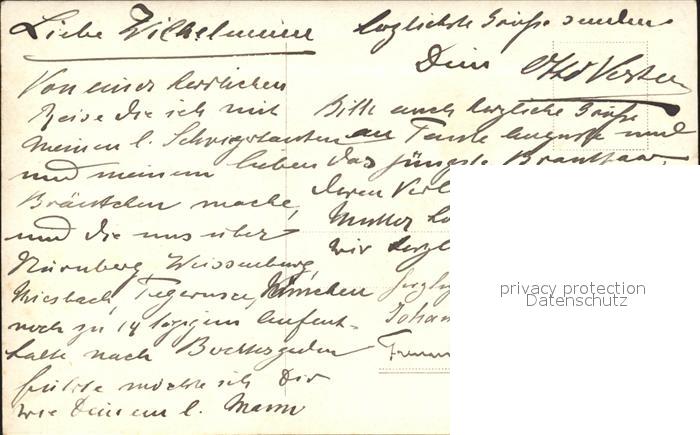 Liebe Wilhelmine
Von einer herrlichen
Reise die ich mit
meinen l. Schwiegereltern
und meinem lieben
Bräutchen mache,
und die uns über
Nürnberg, Weissenburg,
Miesbach, Tegernsee, München
noch zu 14 tägigem Aufent-
halte nach Berchtesgaden
führte möchte ich Dir
wie Deinem l. Mann
herzlichste Grüße senden
Dein Otto
Bitte auch herzliche Grüße
an Tante Auguste und
das jüngste Brautpaar,
deren
Mutter
wir
privacy protection
Datenschutz